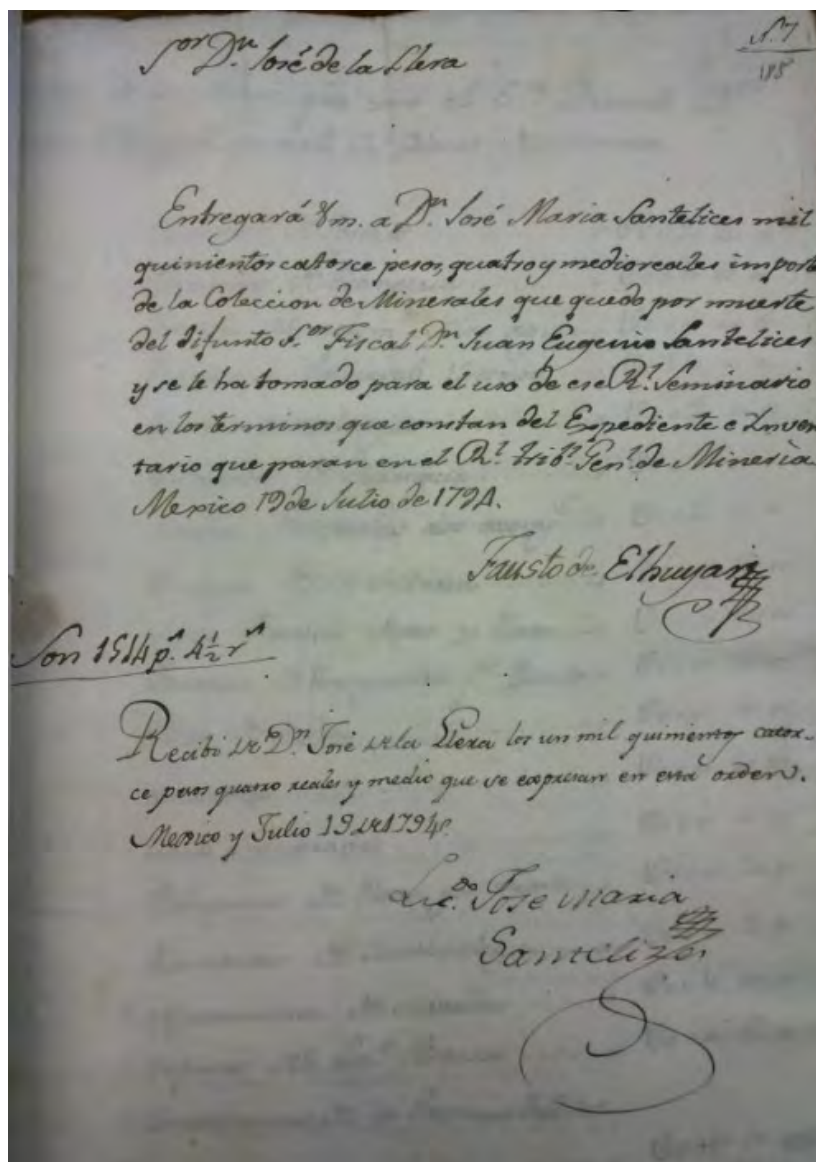 S.or D.n José de la Llera
N. 7
188
Entregará Vm. a D.n José Maria Santelices mil
quinientos catorce pesos, quatro y medio reales import
de la Coleccion de Minerales que quedo por muerte
del difunto S.or Fiscal D.n Juan Eugenio Santelices
y se le ha tomado para el uso de ese R.l Seminario
en los terminos que constan del Expediente e Inven
tario que paran en el R.l trib.l Gen.l de Mineria
Mexico 19 de Julio de 1794.
Fausto de Elhuyar
Son 1514 p.s 4 1/2 r.s
Recibi de D.n José de la Llera los un mil quinientos cator-
ce pesos quatro reales y medio que se expresan en esta orden.
Mexico y Julio 19 de 1794.
Lic.do Jose Maria
Santelizes